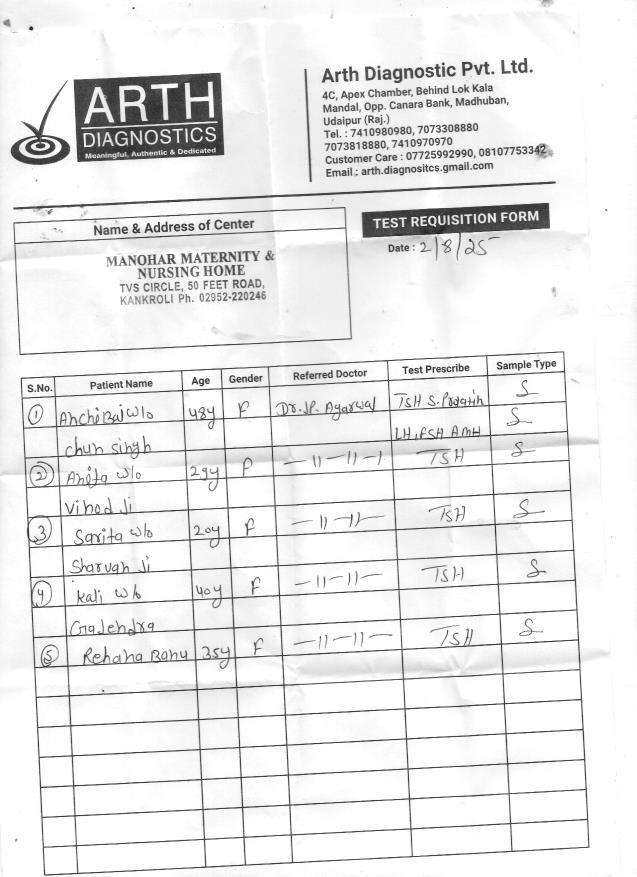 ARTH
DIAGNOSTICS
Meaningful, Authentic & Dedicated
Arth Diagnostic Pvt. Ltd.
4C, Apex Chamber, Behind Lok Kala
Mandal, Opp. Canara Bank, Madhuban,
Udaipur (Raj.)
Tel. : 7410980980, 7073308880
7073818880, 7410970970
Customer Care : 07725992990, 08107753342
Email.: arth.diagnositcs.gmail.com
Name & Address of Center
MANOHAR MATERNITY &
NURSING HOME
TVS CIRCLE, 50 FEET ROAD,
KANKROLI Ph. 02952-220246
TEST REQUISITION FORM
Date : 2/8/25
S.No. Patient Name Age Gender Referred Doctor Test Prescribe Sample Type
1 Anchi Bai w/o 48y F Dr. J.P. Agarwal TSH S. S
chun singh LH, FSH AMH S
2 Anita w/o 29y F -11-11- TSH S
Vinod Ji
3 Sarita w/o 20y F -11-11- TSH S
Sharvan Ji
4 Kali w/o 40y F -11-11- TSH S
Gajendra
5 Rehana Banu 35y F -11-11- TSH S